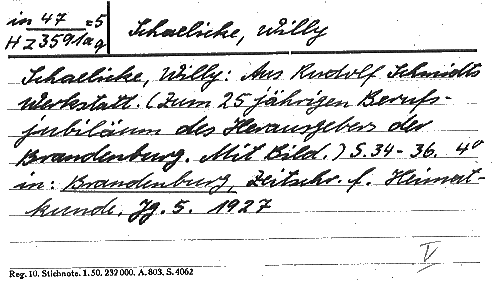 in 47 =5
HZ 3591a g
Schaelicke, Willy
Schaelicke, Willy: Aus Rudolf Schmidts
Werkstatt. (Zum 25 jährigen Berufs-
jubiläum des Herausgebers der
Brandenburg. Mit Bild.) S. 34-36. 4°
in: Brandenburg, Zeitschr. f. Heimat-
kunde, Jg. 5. 1927
V
Reg. 10. Stichnote. 1. 50. 232 000. A. 803. S. 4062